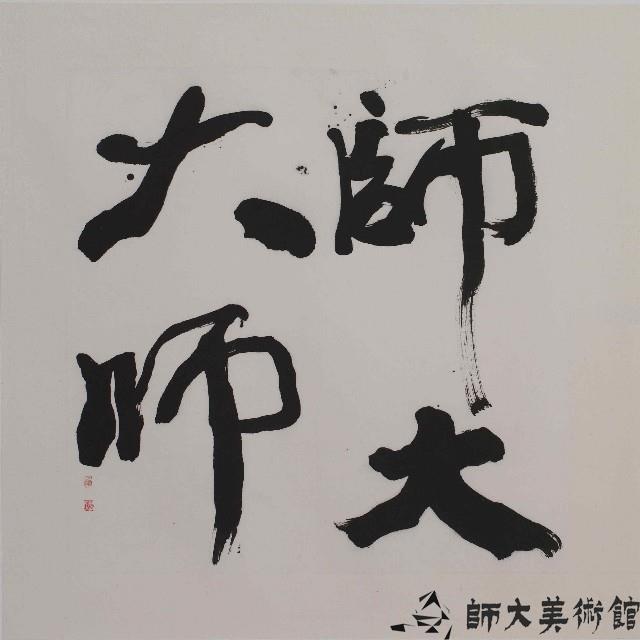 師大
大師
師大美術館